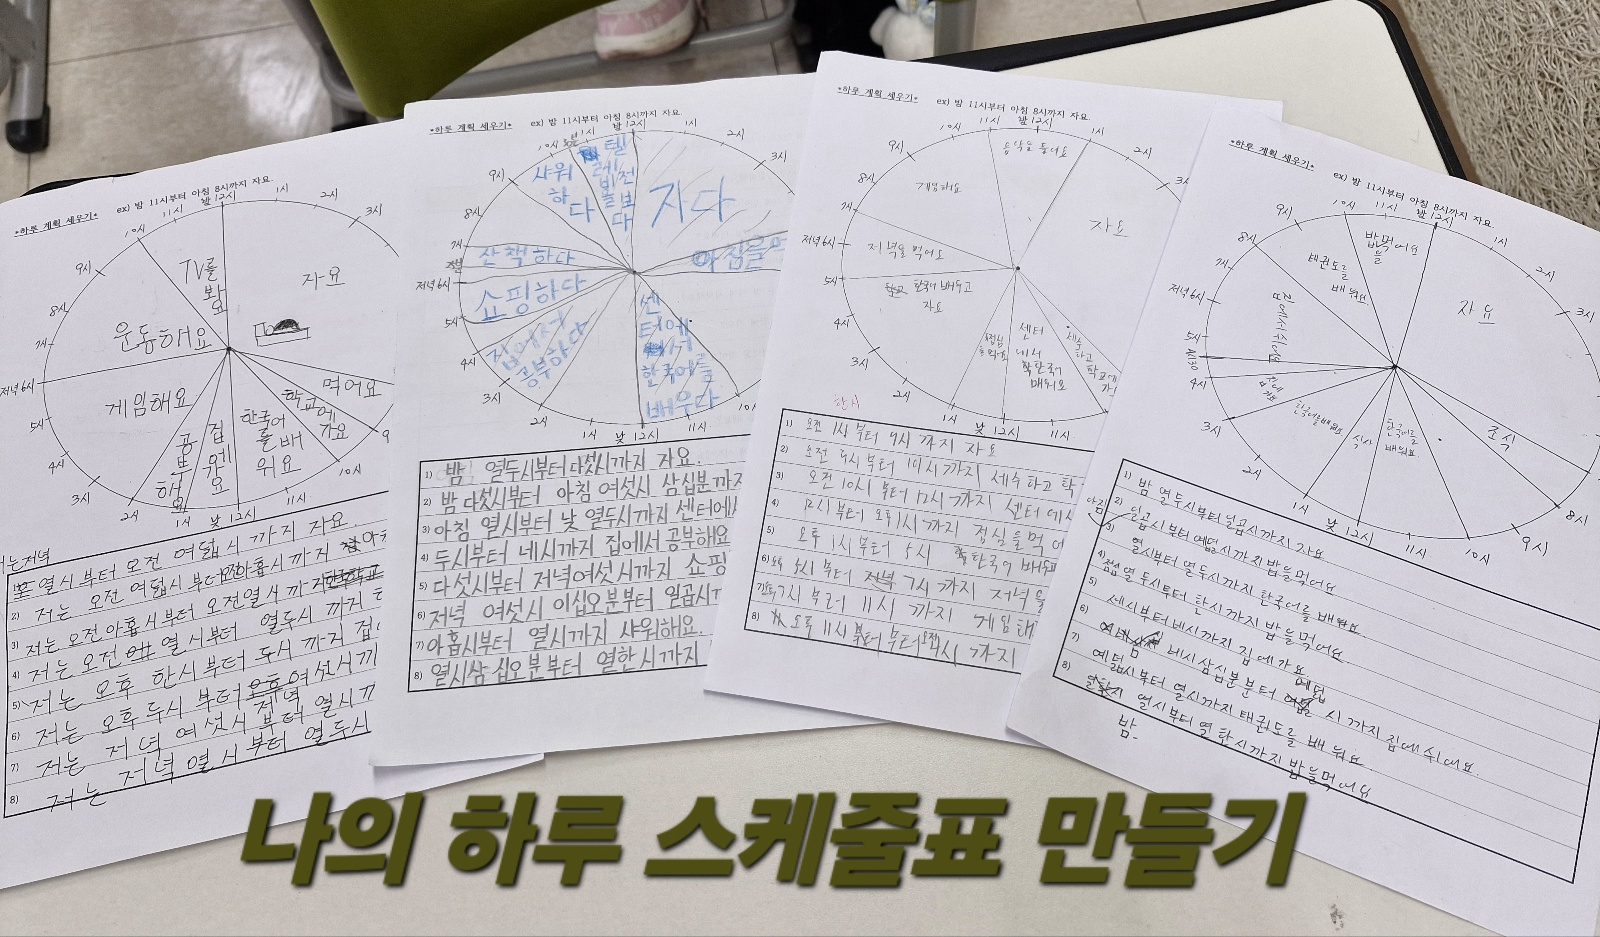 *하루 계획 세우기* ex) 밤 11시부터 아침 8시까지 자요.
밤 12시
1시
2시
3시
9
10시
11시
낮 12시
1시
2시
3시
4시
5시
저녁 6시
7시
8시
9시
10시
11시
자요
먹어요
학교에 가요
한국어를 배워요
집에 와요
공부해요
게임해요
운동해요
TV를 봐요
열시부터 오전 여덟시 까지 자요.
2) 저는 오전 여덟시 부터 아홉시 까지
3) 저는 오전 아홉시 부터 오전 열시 까지
4) 저는 오전 열시부터 열두시 까지
5) 저는 오후 한시부터 두시 까지 집
6) 저는 오후 두시 부터 여섯시까
7) 저는 저녁 여섯시 부터 열시
8) 저는 저녁 열시 부터 열두시
*하루 계획 세우기* ex) 밤 11시부터 아침 8시까지 자요.
밤 12시
1시
2시
3시
낮 12시
1시
2시
3시
4시
5시
저녁 6시
7시
8시
9시
10시
자다
아침을
센터에서 한국어를 배우다
집에서 공부하다
쇼핑하다
산책하다
샤워하다
텔레비전을 보다
1) 밤 열두시부터 다섯시까지 자요.
2) 밤 다섯시부터 아침 여섯시 삼십분까지
3) 아침 열시부터 낮 열두시까지 센터에서
4) 두시부터 네시까지 집에서 공부해요
5) 다섯시부터 저녁여섯시까지 쇼핑
6) 저녁 여섯시 이십오분부터 일곱시
7) 아홉시부터 열시까지 샤워해요.
8) 열시삼십오분부터 열한시까지
*하루 계획 세우기* ex) 밤 11시부터 아침 8시까지 자요.
11시
밤 12시
1시
2시
3시
11시
낮 12시
1시
2시
3시
4시
5시
저녁 6시
7시
8시
9시
10시
음악을 들어요
자요
세수하고 학교에 가
센터에서 한국어 배워요
한국어 배우고
자요
저녁을 먹어요
게임해요
한시
1) 오전 1시부터 9시 까지 자요
2) 오전 9시부터 10시까지 세수하고 학
3) 오전 10시 부터 12시까지 센터에서
4) 12시부터 오후1시 까지 점심을먹어
5) 오후 1시부터 5시 한국어 배우고
6) 오후 5시 부터 7시 까지 저녁을
7시 부터 11시 까지 게임해
8) 오후 11시 부터 까지
*하루 계획 세우기* ex) 밤 11시부터 아침 8시까지 자요.
밤 12시
1시
2시
3시
8시
9시
10시
11시
낮 12시
1시
2시
3시
4시
4시30
5시
저녁 6시
7시
8시
9시
10시
11시
밥을먹어요
자요
조식
한국어를 배워요
식사
한국어를 배워요
집에 가요
집에서 쉬어요
태권도를 배워요
1) 밤 열두시부터 일곱시까지 자요
아침
2) 일곱시부터 여덟시까지 밥을먹어요
3) 열시부터 열두시까지 한국어를 배워요
4) 열두시부터 한시까지 밥을먹어요
5) 세시부터네시까지 집에가요
6) 네시 삼십분부터 여덟시까지 집에 쉬어요.
7) 여덟시부터 열시까지 태권도를 배워요.
8) 열시부터 열한시까지 밥을먹어요
밤
나의 하루 스케줄표 만들기